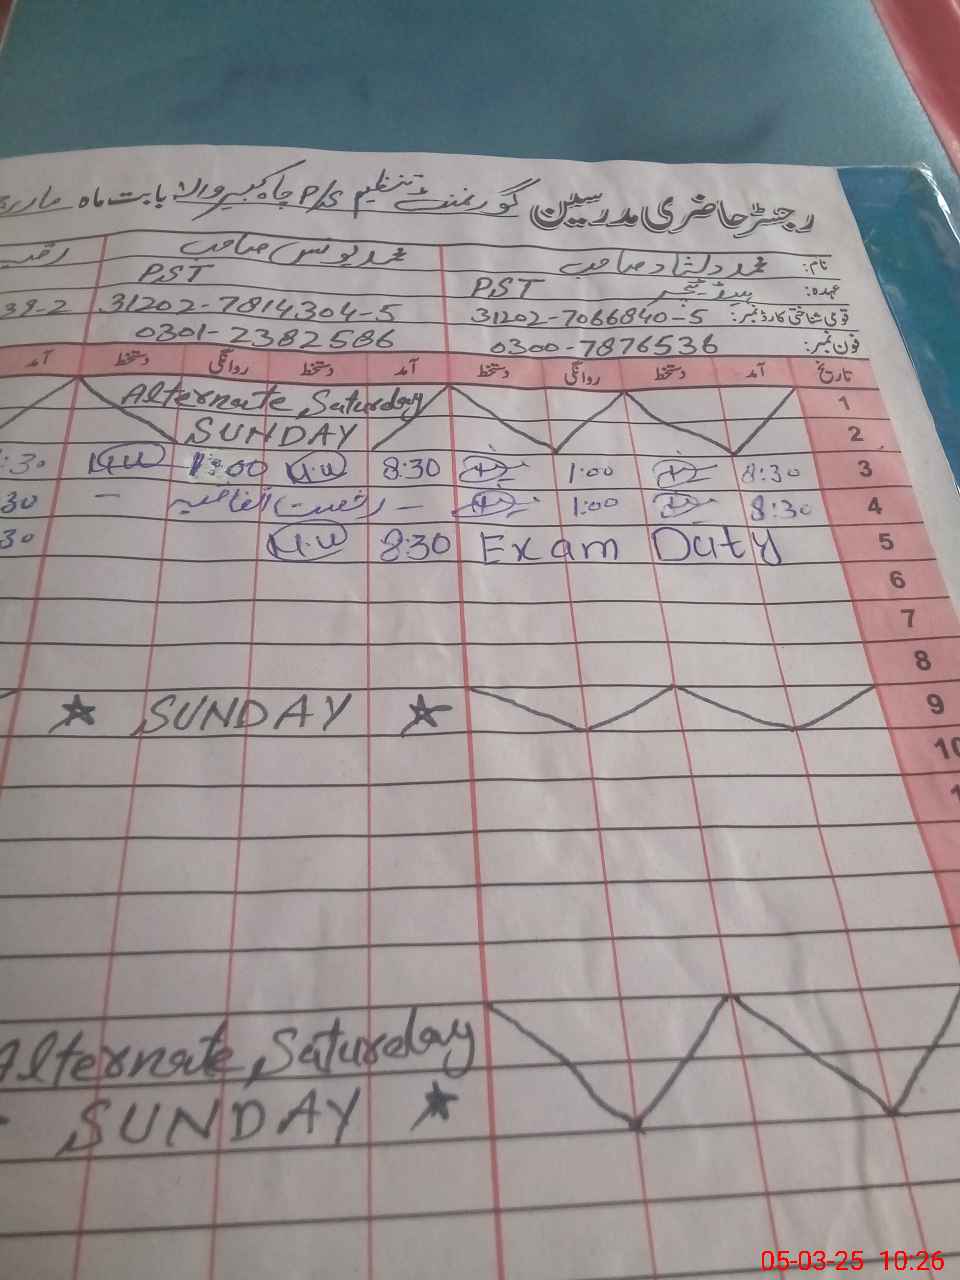 رجسٹر حاضری مدرسین گورنمنٹ تنظیم P/S چاہ والا بابت ماہ
نام: محمد دلشاد صاحب محمد یونس صاحب
عہدہ: ہیڈ ٹیچر PST PST
قومی شناختی کارڈ نمبر: 31202-7066840-5 31202-7814304-5 39-2
فون نمبر: 0300-7876536 0301-2382586
تاریخ آمد دستخط روانگی دستخط آمد دستخط روانگی دستخط آمد
1 Alternate Saturday
2 SUNDAY
3 8:30 1:00 8:30 M.U 1:00 M.U :30
4 8:30 1:00 – رخصت اتفاقیہ – 30
5 Exam Duty 8:30 M.U 30
6
7
8
9 ★ SUNDAY ★
10
1
Alternate Saturday
SUNDAY ★
05-03-25 10:26